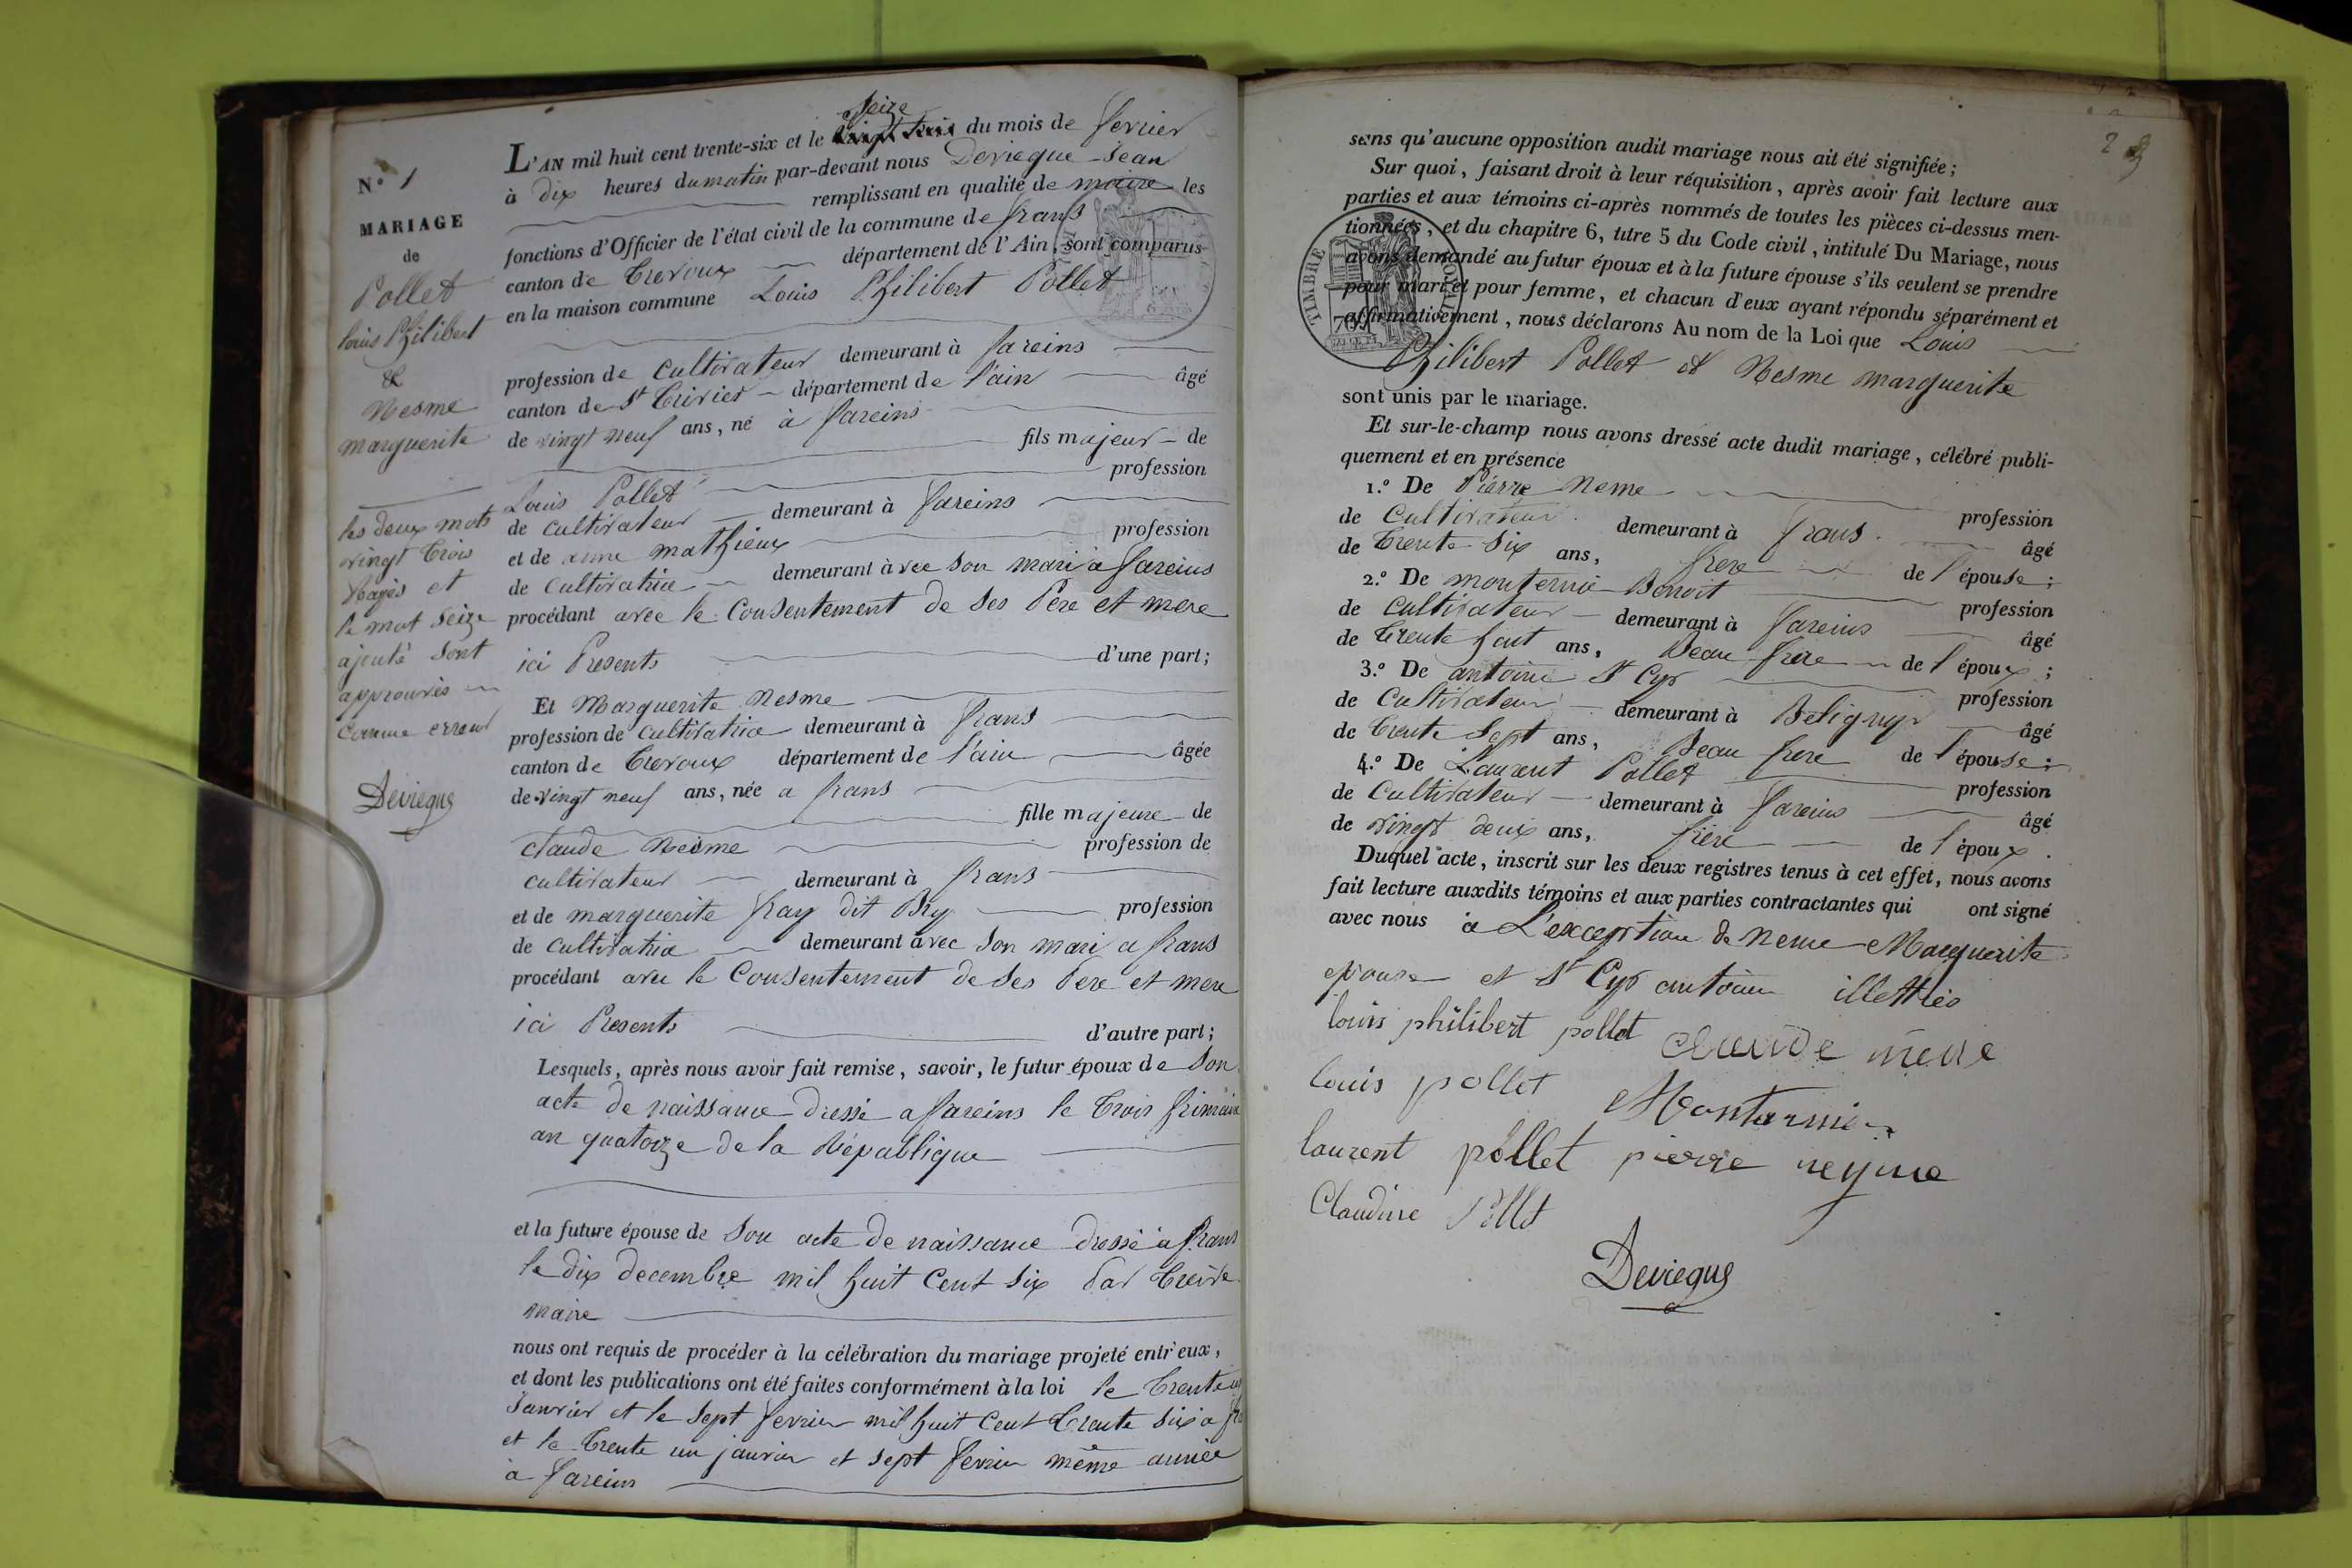 N.° 1
MARIAGE
de
Pollet
louis Philibert
&
Nesme
marguerite
les deux mots
vingt trois
Rayés et
le mot Seize
ajouté sont
approuvés
comme erreur
Devieque
Seize
L'AN mil huit cent trente-six et le vingt trois du mois de fevrier
à dix heures du matin par-devant nous Devieque Jean
remplissant en qualité de maire les
fonctions d'Officier de l'état civil de la commune de frans
canton de Trevoux département de l'Ain, sont comparus
en la maison commune Louis Philibert Pollet
profession de cultivateur demeurant à fareins
canton de St Trivier département de l'ain âgé
de vingt neuf ans, né à fareins
fils majeur de
Louis Pollet profession
de cultivateur demeurant à fareins
et de anne mathieux profession
de cultivatrice demeurant avec son mari a fareins
procédant avec le Consentement de ses Pere et mere
ici Presents d'une part;
Et Marguerite Nesme
profession de cultivatrice demeurant à frans
canton de Trevoux département de l'ain âgée
de vingt neuf ans, née a frans
fille majeure de
claude Nesme profession de
cultivateur demeurant à frans
et de marguerite fray dit Bry profession
de cultivatrice demeurant avec son mari a frans
procédant avec le Consentement de ses Pere et mere
ici Presents d'autre part;
Lesquels, après nous avoir fait remise, savoir, le futur époux de Son
acte de naissance dressé a fareins le trois frimaire
an quatorze de la République
et la future épouse de Son acte de naissance dressé a frans
le dix decembre mil huit cent six Par
maire
nous ont requis de procéder à la célébration du mariage projeté entr'eux,
et dont les publications ont été faites conformément à la loi le trente un
Janvier et le sept fevrier mil huit cent trente six a
et le trente un janvier et sept fevrier même année
a fareins
2
sans qu'aucune opposition audit mariage nous ait été signifiée;
Sur quoi, faisant droit à leur réquisition, après avoir fait lecture aux
parties et aux témoins ci-après nommés de toutes les pièces ci-dessus men-
tionnées, et du chapitre 6, titre 5 du Code civil, intitulé Du Mariage, nous
avons demandé au futur époux et à la future épouse s'ils veulent se prendre
pour mari et pour femme, et chacun d'eux ayant répondu séparément et
affirmativement, nous déclarons Au nom de la Loi que Louis
Philibert Pollet et Nesme marguerite
TIMBRE ROYAL
sont unis par le mariage.
Et sur-le-champ nous avons dressé acte dudit mariage, célébré publi-
quement et en présence
1.° De Pierre Neme profession
de Cultivateur demeurant à frans âgé
de trente six ans, frere de l'épouse;
2.° De monternié Benoit profession
de cultivateur demeurant à fareins âgé
de trente huit ans, Beau frere de l'époux;
3.° De antoine St Cyr profession
de Cultivateur demeurant à Beligny âgé
de trente sept ans, Beau frere de l'épouse;
4.° De Laurent Pollet profession
de Cultivateur demeurant à fareins âgé
de vingt deux ans, frère de l'époux.
Duquel acte, inscrit sur les deux registres tenus à cet effet, nous avons
fait lecture auxdits témoins et aux parties contractantes qui ont signé
avec nous à L'exception de neme Marguerite
epouse et St Cyr antoine illettrés
louis philibert pollet claude neme
louis pollet Montarnier
laurent pollet pierre neyme
Claudine Pollet
Devieque